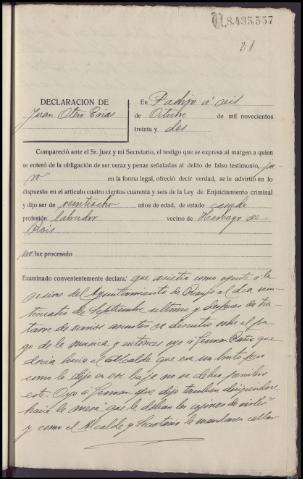 N.8.435.557
21
DECLARACION DE
Juan Otero Eiras
En Padrón á seis
de Octubre de mil novecientos
treinta y dos
Compareció ante el Sr. Juez y mi Secretario, el testigo que se expresa al margen a quien
se enteró de la obligación de ser veraz y penas señaladas al delito de falso testimonio, ju-
ró en la forma legal, ofreció decir verdad, se le advirtió en lo
dispuesto en el artículo cuatro cientos cuarenta y seis de la Ley de Enjuiciamiento criminal
y dijo ser de veintiocho años de edad, de estado casado
profesión labrador vecino de Santiago de
no fue procesado
Examinado convenientemente declara: que asistió como oyente á la
sesión del Ayuntamiento de el día vein-
ticuatro de Septiembre último y despues de tra-
tarse de varios asuntos se discutió sobre el pa-
go de la música y entonces oyó á German que
decía hacia el alcalde que era un
como le dijo en voz baja no se debió
Oyó á German que dijo tambien dirigiendose
hacia la mesa que le debían
y como el Alcalde y Secretario le mandaron callar